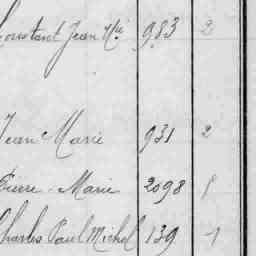 Constant Jean Mie 983 2
Jean Marie 931 2
Pierre Marie 2098 1
Charles Paul Michel 139 1